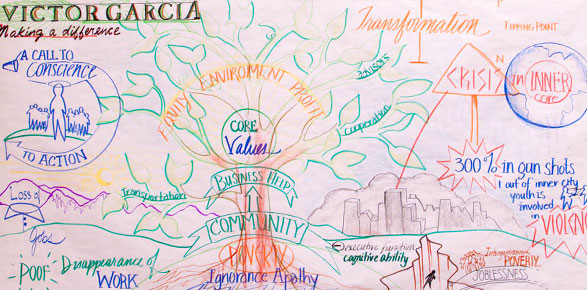 VICTOR GARCIA
Making a difference
A CALL TO
Conscience
TO ACTION
Transformation
TIPPING POINT
EQUITY ENVIROMENT PROFIT
CORE
Values
ADVISORS
Cooperation
CRISIS
in INNER
core
300% in gun shots
1 out of inner city
youth is
involved
in
VIOLENCE
Transportation
BUSINESS HELP
COMMUNITY
Loss of
Jobs
POOF
Disappearance of
WORK
Ignorance Apathy
executive function
cognitive ability
Intergenerational
POVERTY
JOBLESSNESS